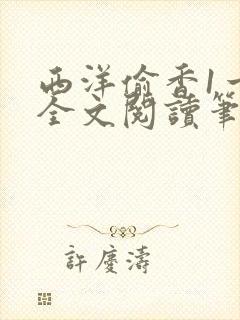 西洋偷香1一
全文閱讀筆
許慶濤